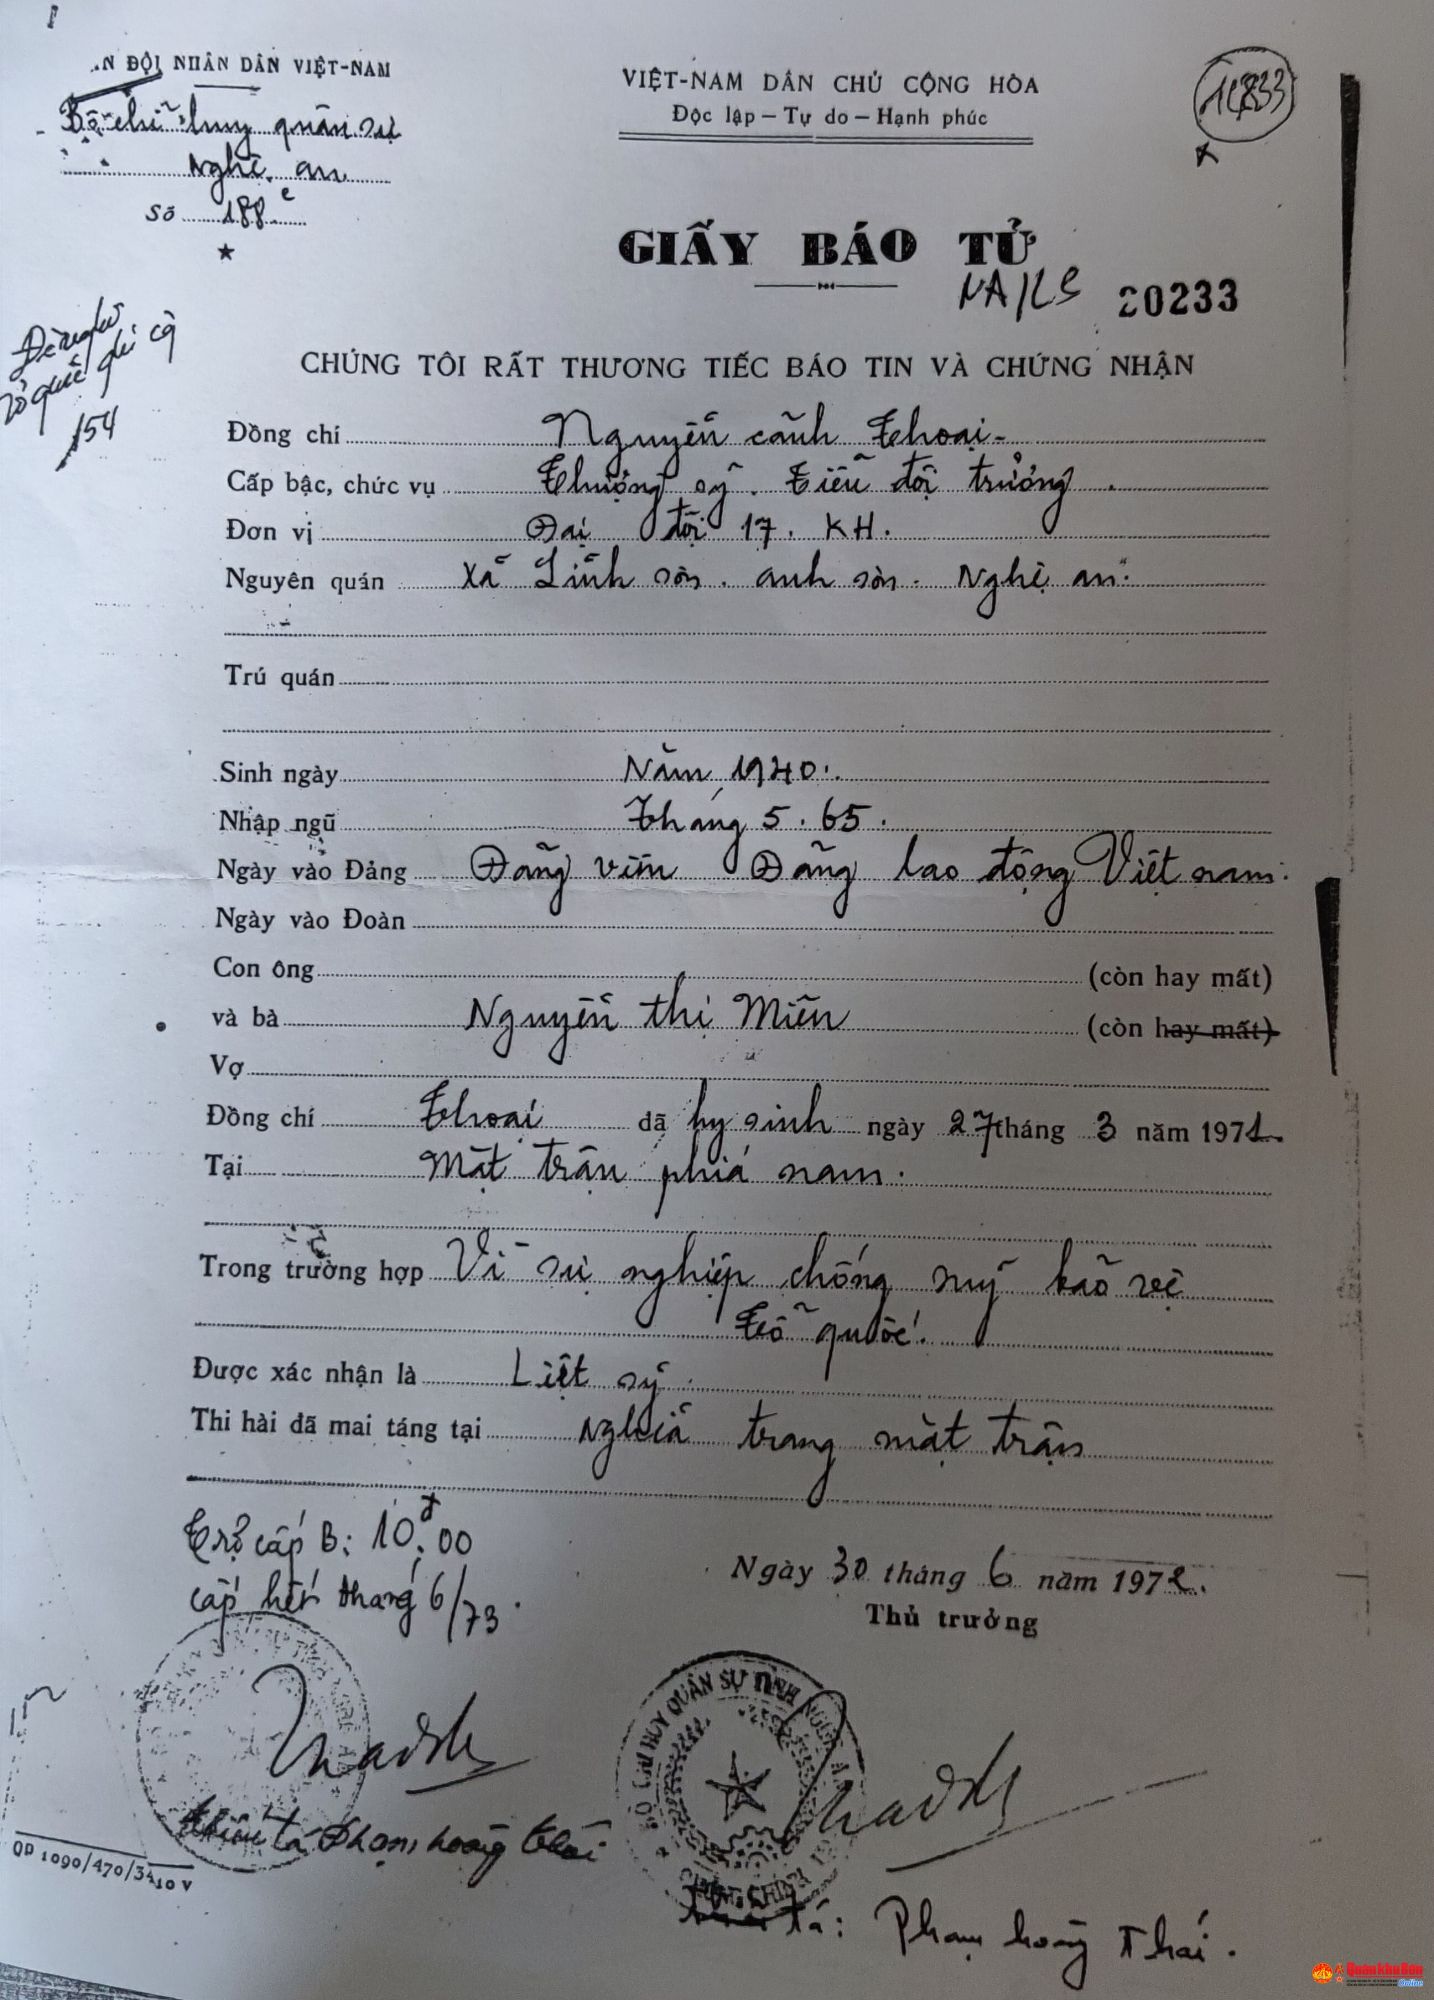 ÂN ĐỘI NHÂN DÂN VIỆT-NAM
Bộ chỉ huy quân sự
Nghệ an
Số 188
VIỆT-NAM DÂN CHỦ CỘNG HÒA
Độc lập – Tự do – Hạnh phúc
GIẤY BÁO TỬ
NA/LS 20233
Đề nghị
154
CHÚNG TÔI RẤT THƯƠNG TIẾC BÁO TIN VÀ CHỨNG NHẬN
Đồng chí Nguyễn cảnh Thoại
Cấp bậc, chức vụ Thượng sỹ. Tiểu đội trưởng.
Đơn vị Đại đội 17. KH.
Nguyên quán Xã Lĩnh sơn. anh sơn. Nghệ an.
Trú quán
Sinh ngày Năm 1940.
Nhập ngũ Tháng 5.65.
Ngày vào Đảng Đảng viên Đảng lao động Việt nam.
Ngày vào Đoàn
Con ông (còn hay mất)
và bà Nguyễn thị Miên (còn hay mất)
Vợ
Đồng chí Thoại đã hy sinh ngày 27 tháng 3 năm 1971.
Tại Mặt trận phía nam.
Trong trường hợp Vì sự nghiệp chống mỹ bảo vệ
tổ quốc.
Được xác nhận là Liệt sỹ.
Thi hài đã mai táng tại Nghĩa trang mặt trận
Trợ cấp B: 10đ,00
cấp hết tháng 6/73.
Ngày 30 tháng 6 năm 1972.
Thủ trưởng
BỘ CHỈ HUY QUÂN SỰ TỈNH NGHỆ AN
thiếu tá Phạm hoàng thái
QD 1090/470/3410 V
tá: Phạm hoàng Thái.
Quân khu Bốn
Online